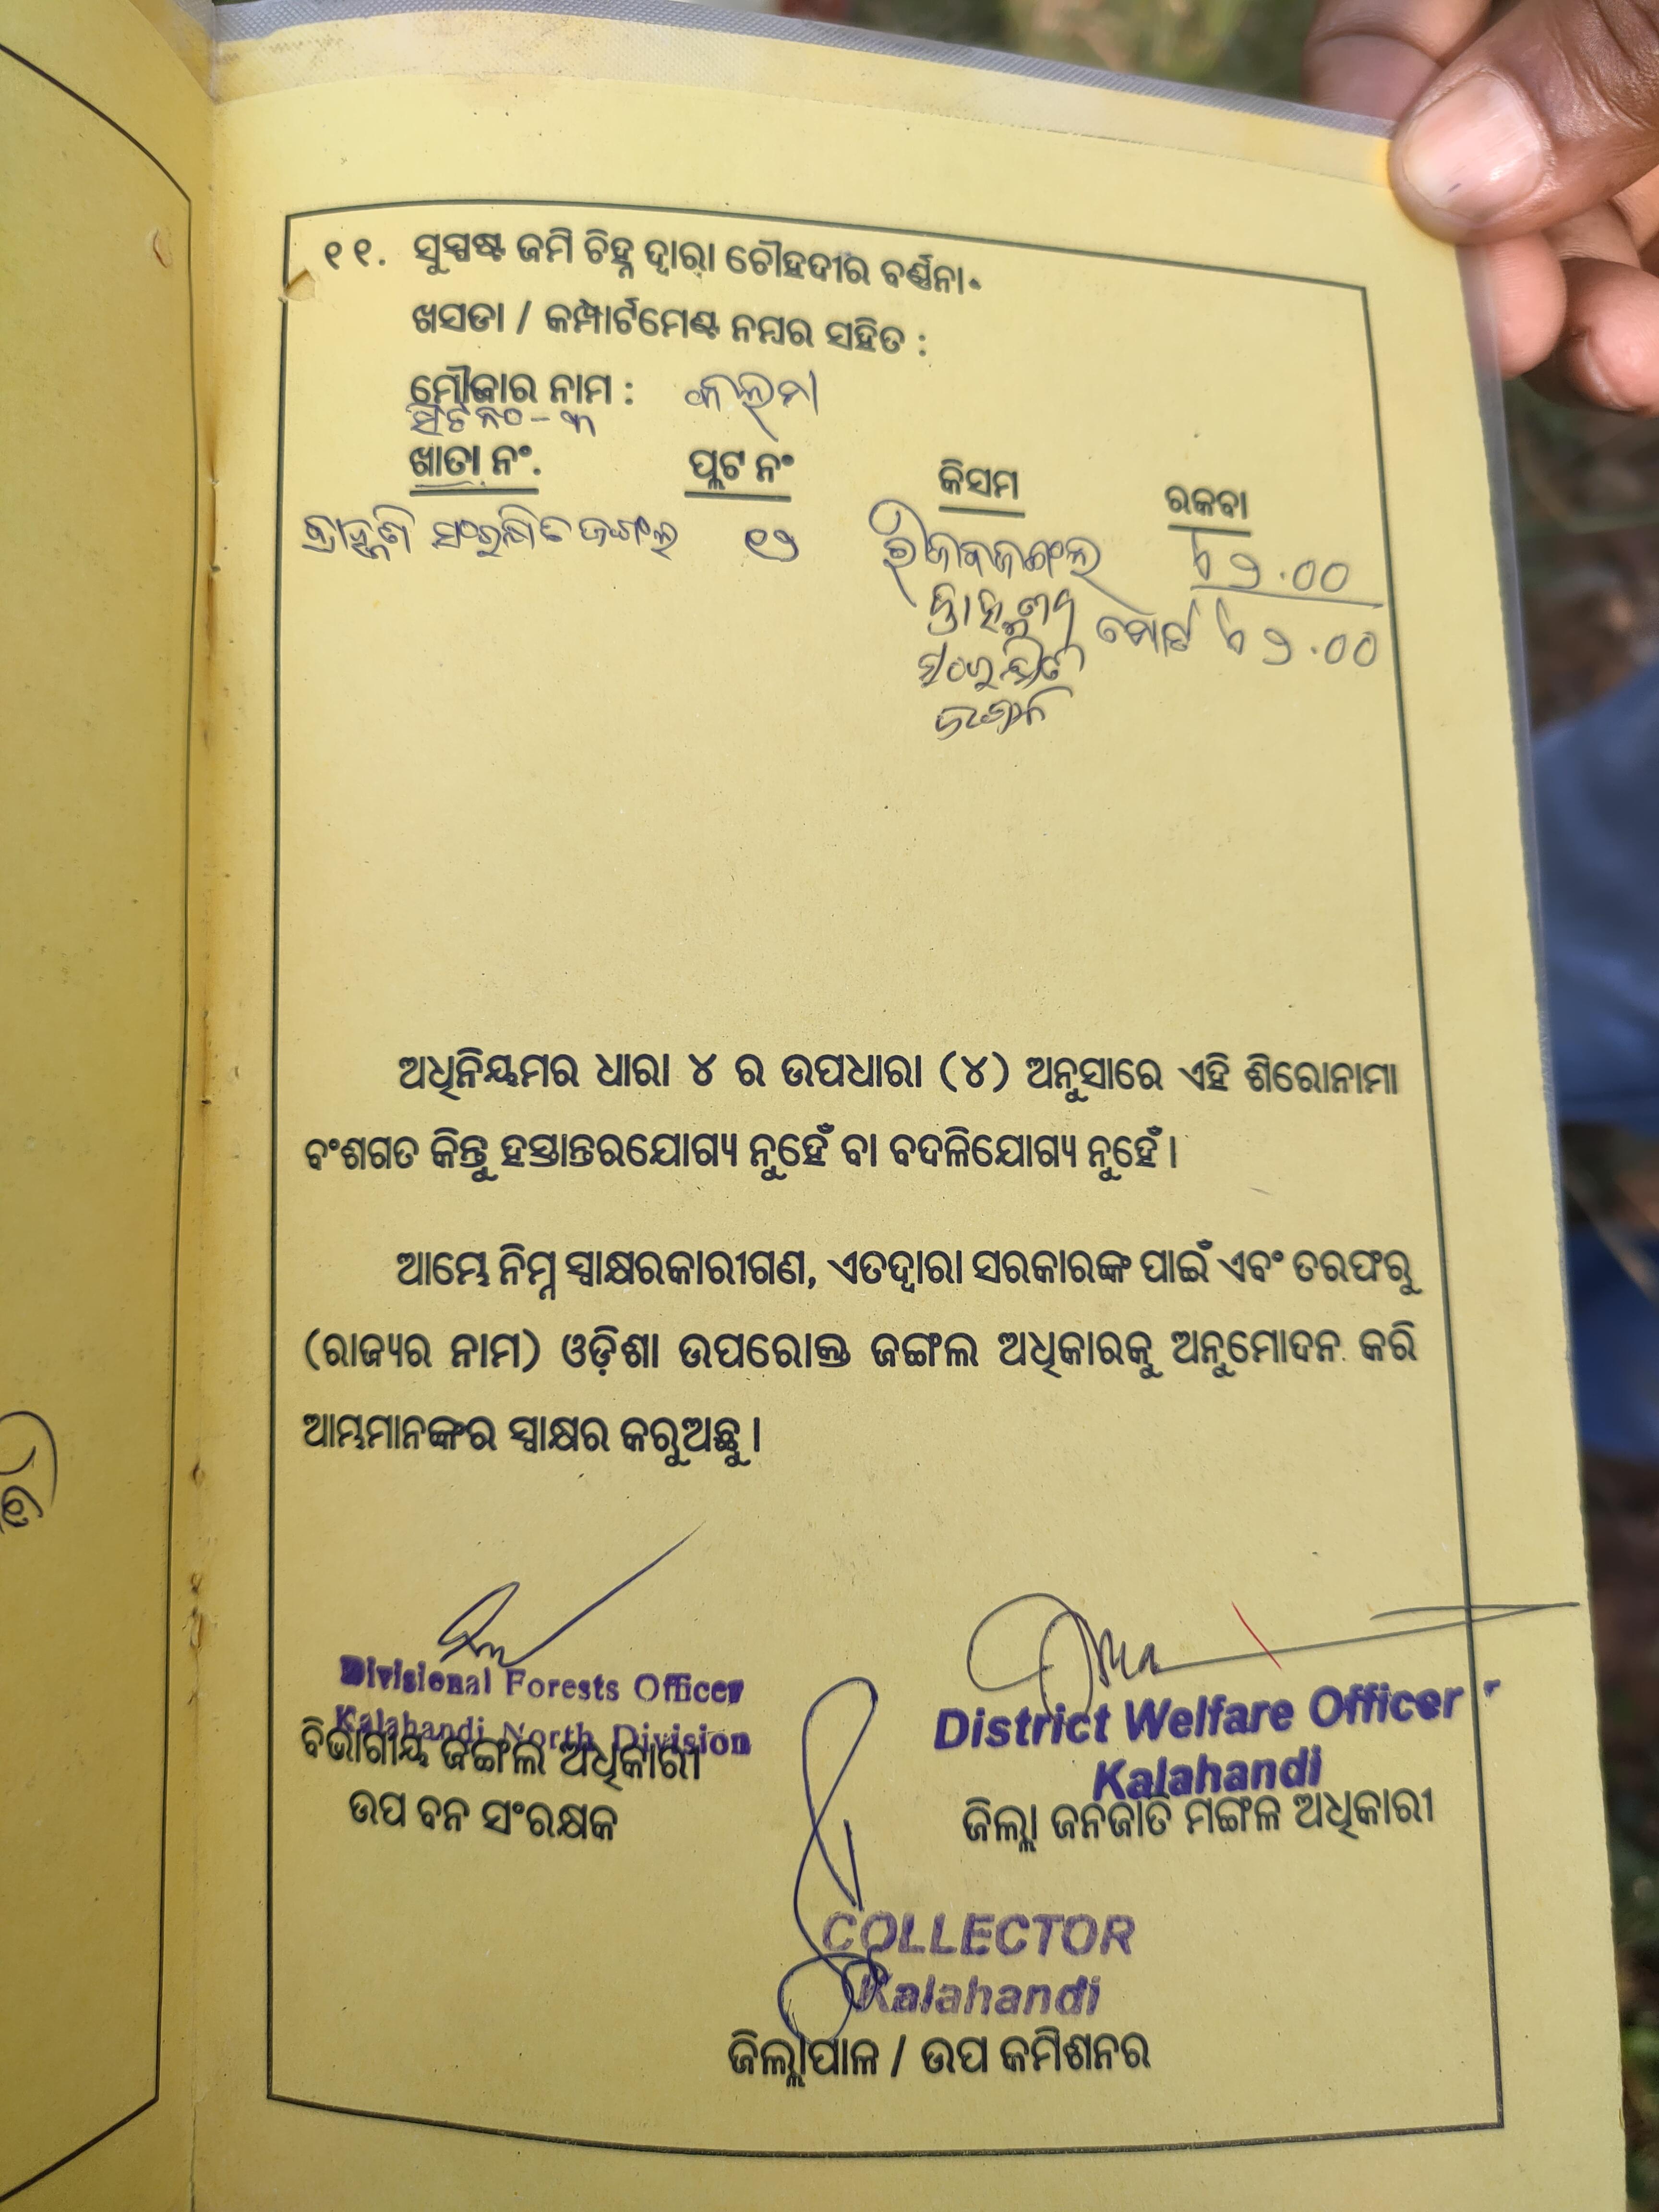 ୧୧. ସୁସ୍ପଷ୍ଟ ଜମି ଚିହ୍ନ ଦ୍ୱାରା ଚୌହଦୀର ବର୍ଣ୍ଣନା.
ଖସଡା / କମ୍ପାର୍ଟମେଣ୍ଟ ନମ୍ବର ସହିତ :
ମୌଜାର ନାମ :
ଖାତା ନଂ. ପ୍ଲଟ ନଂ କିସମ ରକବା
ସଂରକ୍ଷିତ ଜଙ୍ଗଲ ୧୬ ୭.୦୦
ମୋଟ ୭.୦୦
ଅଧିନିୟମର ଧାରା ୪ ର ଉପଧାରା (୪) ଅନୁସାରେ ଏହି ଶିରୋନାମା
ବଂଶଗତ କିନ୍ତୁ ହସ୍ତାନ୍ତରଯୋଗ୍ୟ ନୁହେଁ ବା ବଦଳିଯୋଗ୍ୟ ନୁହେଁ।
ଆମ୍ଭେ ନିମ୍ନ ସ୍ୱାକ୍ଷରକାରୀଗଣ, ଏତଦ୍ୱାରା ସରକାରଙ୍କ ପାଇଁ ଏବଂ ତରଫରୁ
(ରାଜ୍ୟର ନାମ) ଓଡ଼ିଶା ଉପରୋକ୍ତ ଜଙ୍ଗଲ ଅଧିକାରକୁ ଅନୁମୋଦନ କରି
ଆମ୍ଭମାନଙ୍କର ସ୍ୱାକ୍ଷର କରୁଅଛୁ।
Divisional Forests Officer
Kalahandi North Division
ବିଭାଗୀୟ ଜଙ୍ଗଲ ଅଧିକାରୀ
ଉପ ବନ ସଂରକ୍ଷକ
District Welfare Officer
Kalahandi
ଜିଲ୍ଲା ଜନଜାତି ମଙ୍ଗଳ ଅଧିକାରୀ
COLLECTOR
Kalahandi
ଜିଲ୍ଲାପାଳ / ଉପ କମିଶନର